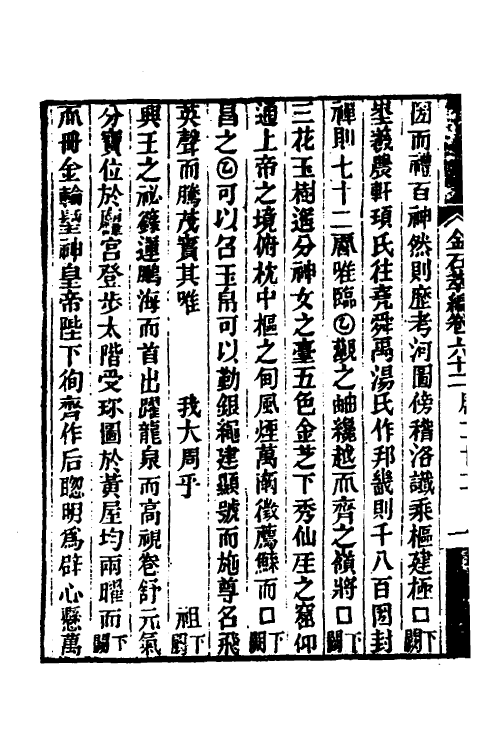 金石萃編卷六十二 周二十二 一
圀而禮百神然則歷考河圖傍稽洛讖乘樞建極囗下闕
羲農軒頊氏往堯舜禹湯氏作邦畿則千八百圀封
禪則七十二𠁈唯臨𡆠觀之岫纔越𠀑齊之嶺將囗下闕
三花玉樹遥分神女之臺五色金芝下秀仙𤯔之窟仰
通上帝之境俯枕中樞之甸風煙萬徵薦而囗下闕
昌之𡆠可以召玉帛可以勤銀繩建顯號而施尊名飛
英聲而騰茂實其唯 我大周乎 祖下闕
興王之祕籙運鵬海而首出躍龍泉而高視卷舒元氣
分寶位於廟宮登步太階受珎圖於黃屋均兩曜而下闕
𠀑冊金輪𨲢神皇帝陛下徇齊作后聰明爲辟心懸萬